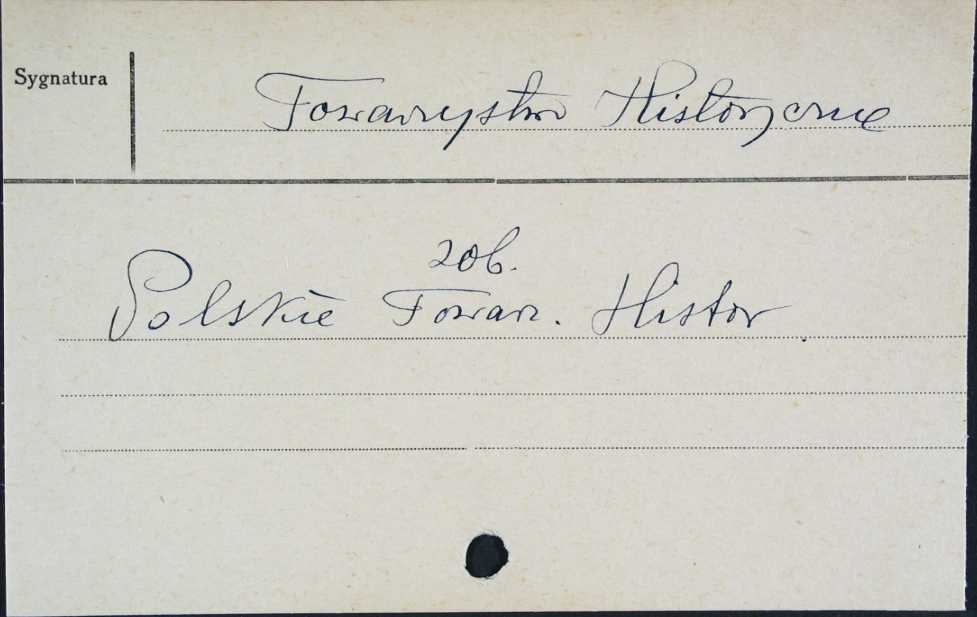 Sygnatura
Towarzystwo Historyczne
zob.
Polskie Towarz. Histor